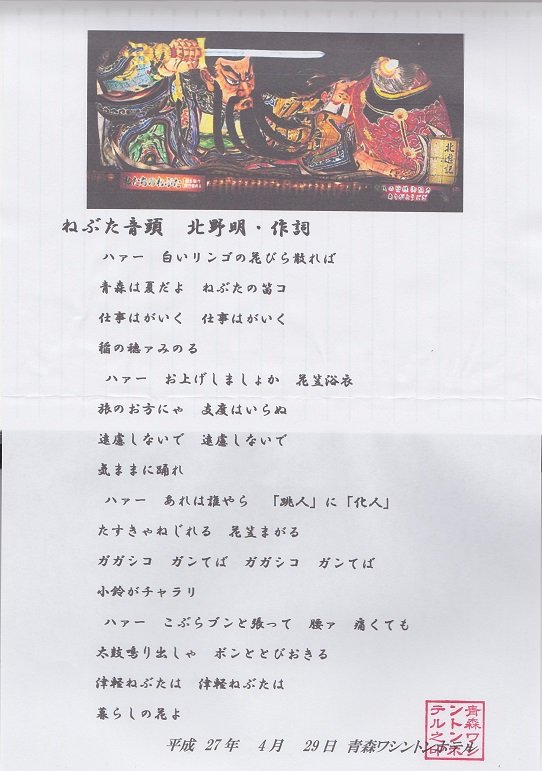 北
ねぶた音頭　北野明・作詞
ハァー　白いリンゴの花びら散れば
青森は夏だよ　ねぶたの笛コ
仕事はがいく　仕事はがいく
稲の穂ァみのる
ハァー　お上げしましょか　花笠浴衣
旅のお方にゃ　支度はいらぬ
遠慮しないで　遠慮しないで
気ままに踊れ
ハァー　あれは誰やら　「跳人」に「化人」
たすきゃねじれる　花笠まがる
ガガシコ　ガンてば　ガガシコ　ガンてば
小鈴がチャラリ
ハァー　こぶらブンと張って　腰ァ　痛くても
太鼓鳴り出しゃ　ポンととびおきる
津軽ねぶたは　津軽ねぶたは
暮らしの花よ
平成　27年　4月　29日　青森ワシントンホテル
青森ワシントンホテル之印